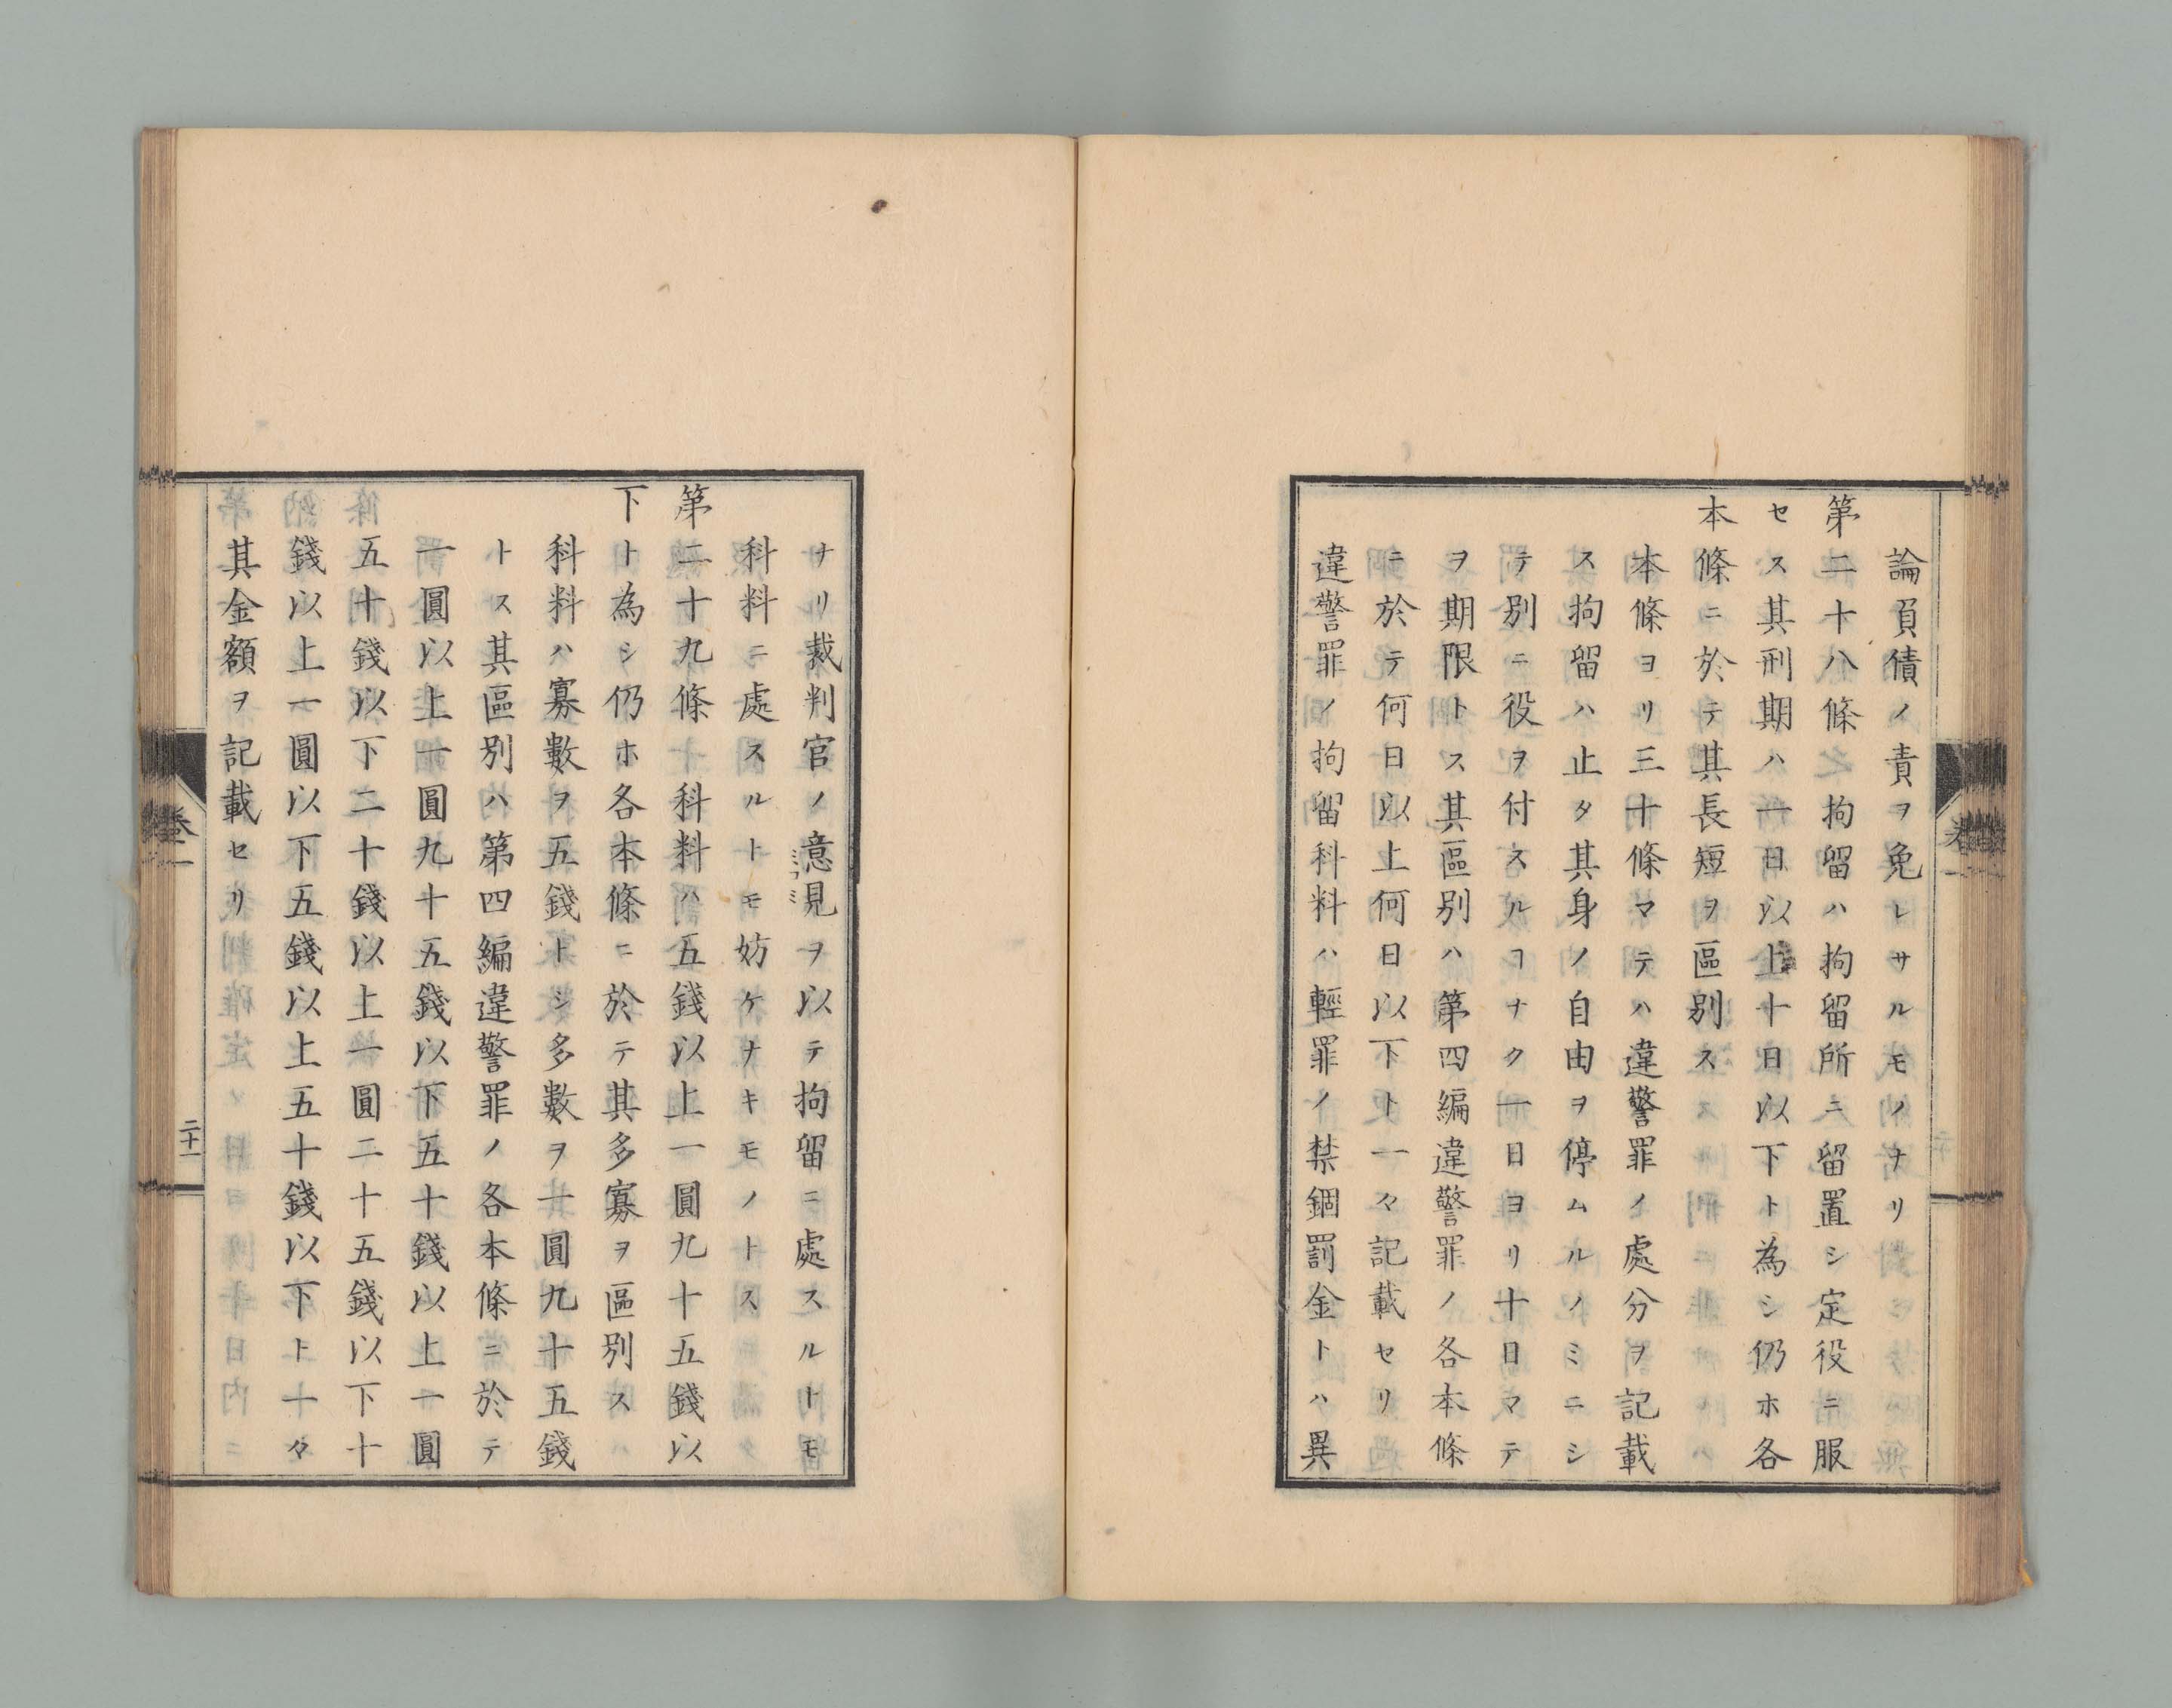 論負債ノ責ヲ免レサルモノナリ
第二十八條 拘留ハ拘留所ニ留置シ定役ニ服
セス其刑期ハ一日以上十日以下ト為シ仍ホ各
本條ニ於テ其長短ヲ區別ス
本條ヨリ三十條マテハ違警罪ノ處分ヲ記載
ス拘留ハ止タ其身ノ自由ヲ停ムルノミニシ
テ別ニ役ヲ付スルコナク一日ヨリ十日マテ
ヲ期限トス其區別ハ第四編違警罪ノ各本條
ニ於テ何日以上何日以下ト一々記載セリ
違警罪ノ拘留科料ハ輕罪ノ禁錮罰金トハ異
ナリ裁判官ノ意見ヲ以テ拘留ニ處スルトモ
科料ニ處スルトモ妨ケナキモノトス
第二十九條 科料ハ五錢以上一圓九十五錢以
下ト為シ仍ホ各本條ニ於テ其多寡ヲ區別ス
科料ハ寡數ヲ五錢トシ多數ヲ一圓九十五錢
トス其區別ハ第四編違警罪ノ各本條ニ於テ
一圓以上一圓九十五錢以下五十錢以上一圓
五十錢以下二十錢以上一圓二十五錢以下十
錢以上一圓以下五錢以上五十錢以下ト十々
其金額ヲ記載セリ
卷一
二十一